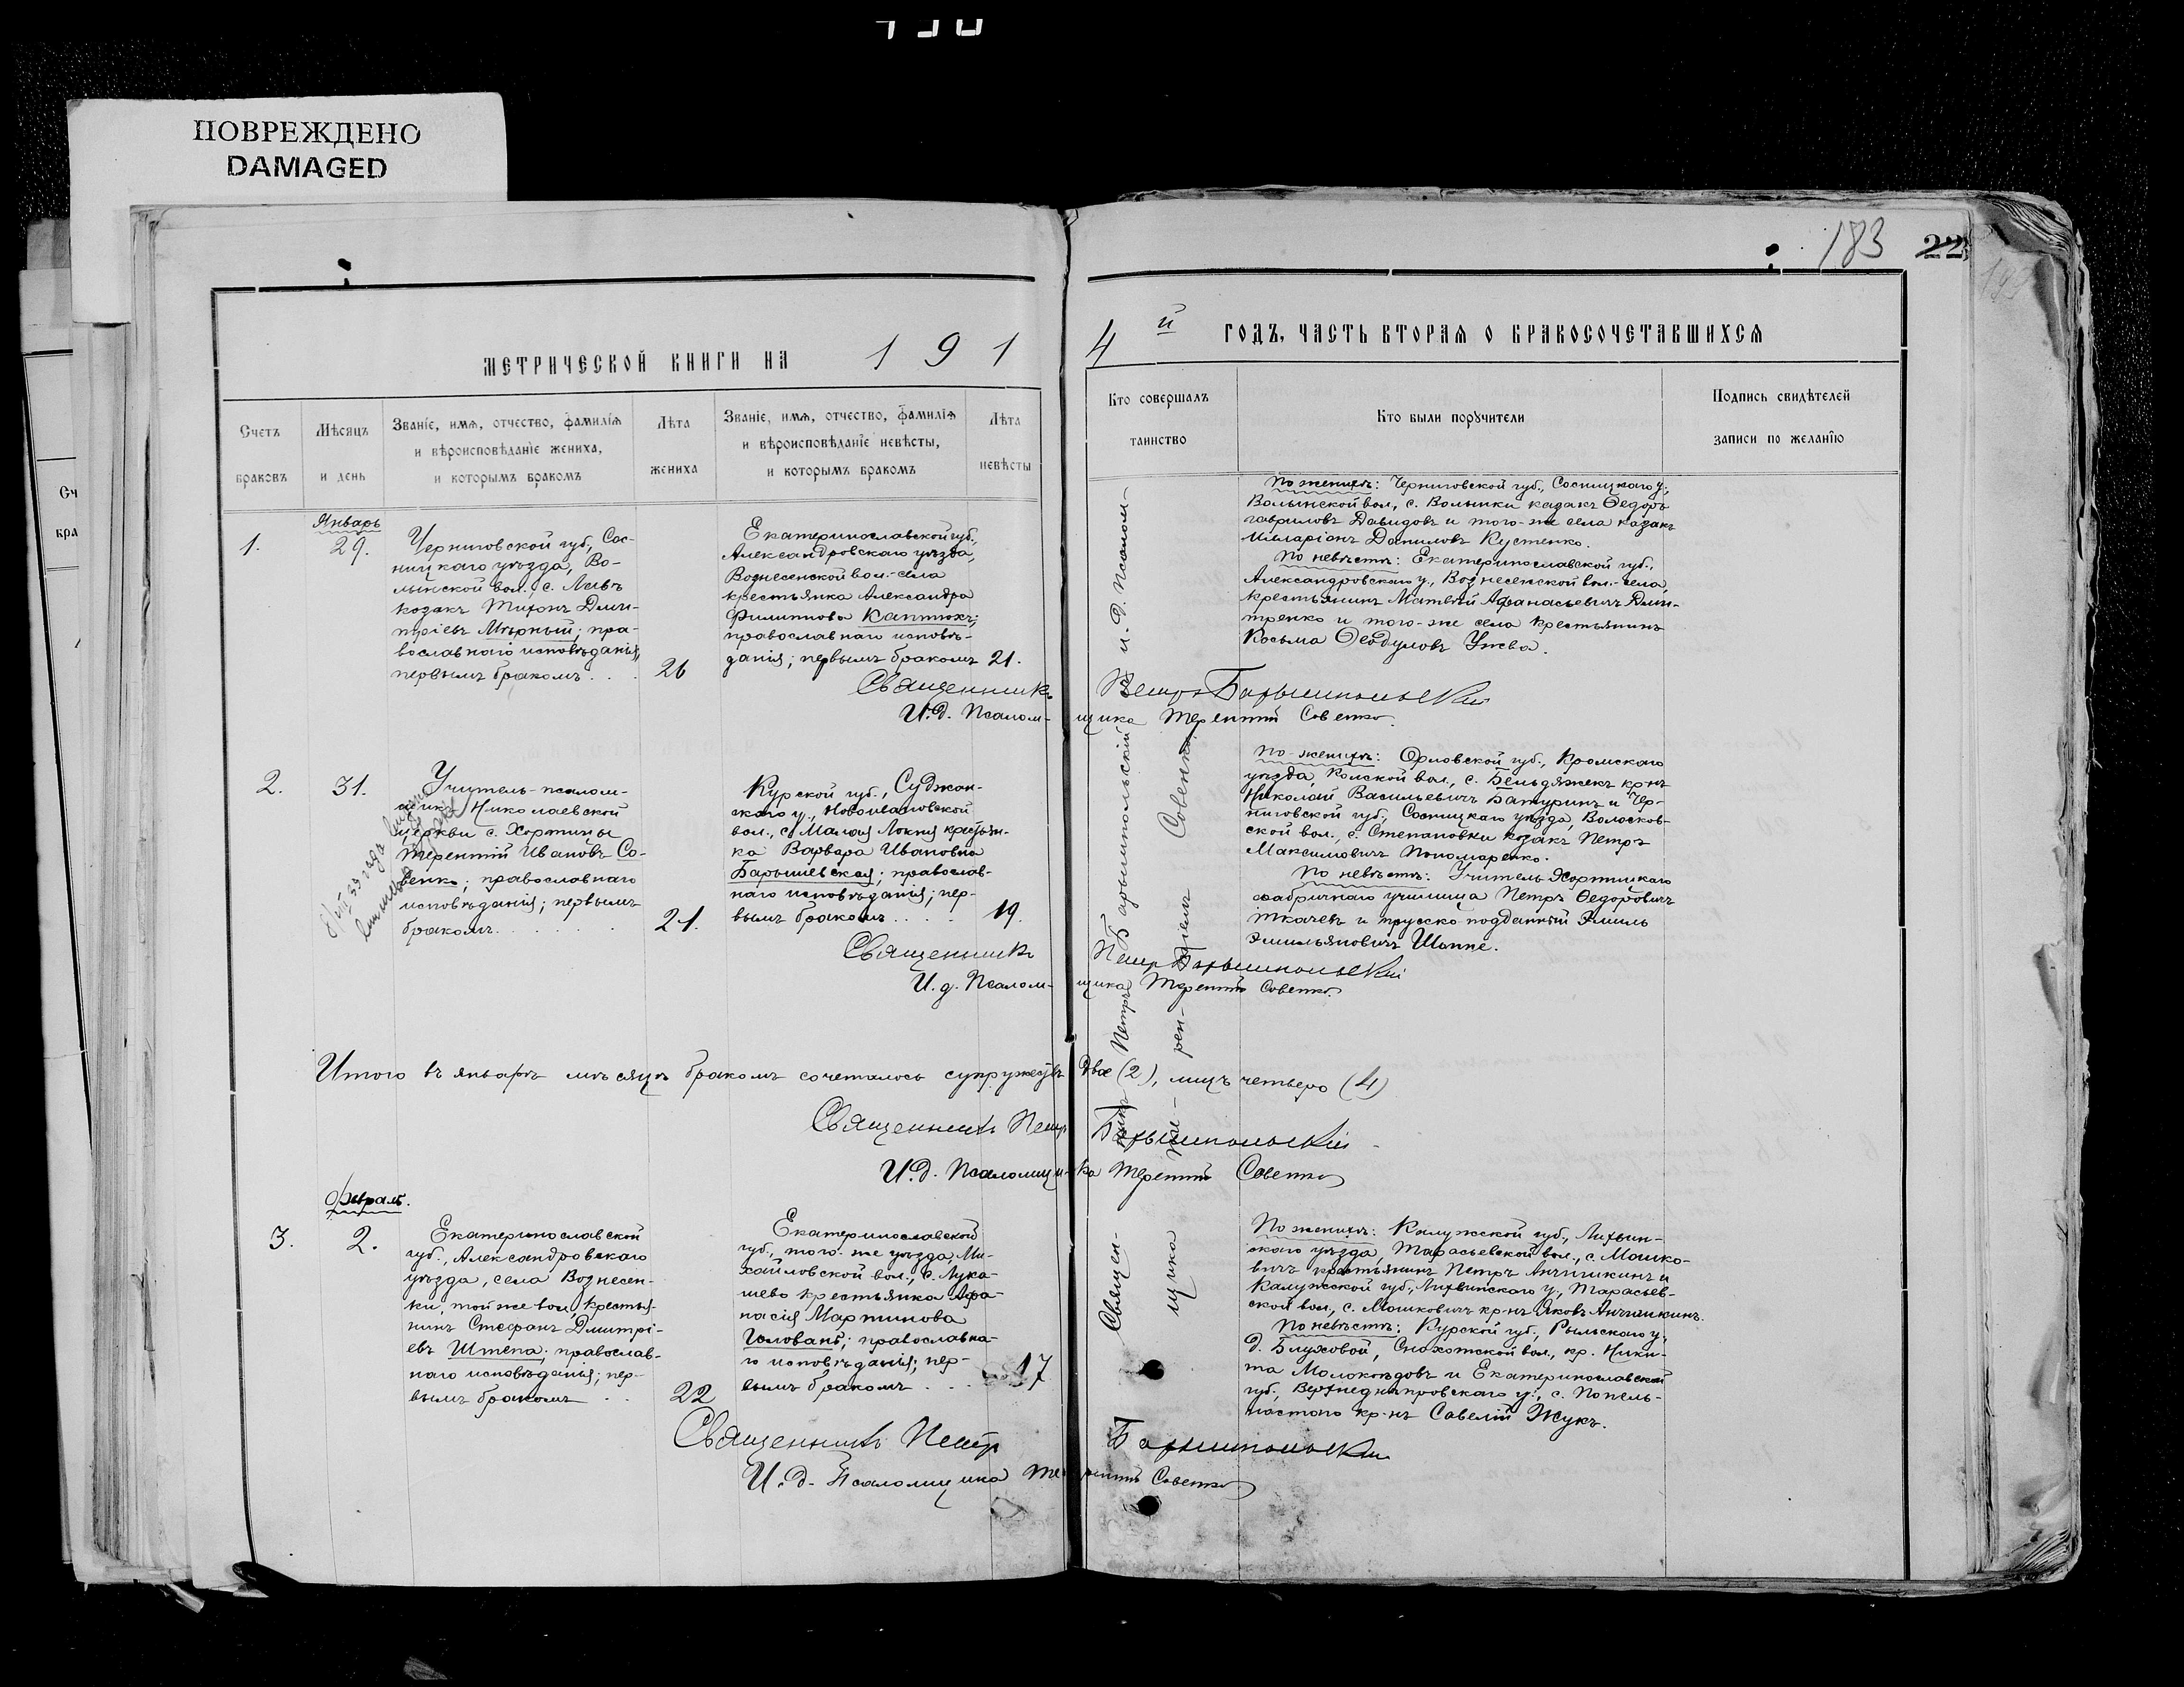 ПОВРЕЖДЕНО
DAMAGED
183
22
МЕТРИЧЕСКОЙ КНИГИ НА 191
4й ГОДЪ, ЧАСТЬ ВТОРАЯ О БРАКОСОЧЕТАВШИХСЯ
Счетъ браковъ
Мѣсяцъ и день
Званіе, имя, отчество, фамилія
и вѣроисповѣданіе жениха,
и которымъ бракомъ
Лѣта жениха
Званіе, имя, отчество, фамилія
и вѣроисповѣданіе невѣсты,
и которымъ бракомъ
Лѣта невѣсты
Кто совершалъ таинство
Кто были поручители
Подпись свидѣтелей
записи по желанію
1.
Январь
29.
Черниговской губ., Сос-
ницкаго уѣзда, Во-
лынской вол., с. Ливъ
козакъ Тихонъ Дми-
тріевъ Мѣрный; пра-
вославнаго исповѣданія,
первымъ бракомъ . . .
26
Екатеринославской губ.,
Александровскаго уѣзда,
Вознесенской вол.-села
крестьянка Александра
Филиппова Каптюхъ;
православнаго исповѣ-
данія; первымъ бракомъ
21.
По женихѣ: Черниговской губ., Сосницкаго у.,
Волынской вол., с. Волынки казакъ Ѳедоръ
Гавриловъ Давидовъ и того-же села казакъ
Илларіонъ Даниловъ Кустенко.
По невѣстѣ: Екатеринославской губ.,
Александровскаго у., Вознесенской вол.-села,
крестьянинъ Матвѣй Афанасьевичъ Дми-
тренко и того-же села крестьянинъ
Косьма Ѳеодуловъ Ужва.
Священникъ Петръ Барышпольскій
И.д. Псаломщика Терентій Совенко.
2.
31.
Учитель-псалом-
щикъ Николаевской
церкви с. Хортицы
Терентій Ивановъ Со-
венко; православнаго
исповѣданія; первымъ
бракомъ . . . . . .
21.
Курской губ., Суджан-
скаго у., Новоивановской
вол., с. Малая Локня крестьян-
ка Варвара Ивановна
Барышевская; православ-
наго исповѣданія; пер-
вымъ бракомъ . . . . .
19.
По женихѣ: Орловской губ., Кромскаго
уѣзда, вол., с. Бельдяжекъ кр-нъ
Николай Васильевичъ Батуринъ и Чер-
ниговской губ., Сосницкаго уѣзда, Волосков-
ской вол., с. Степановки козакъ Петръ
Максимовичъ Пономаренко.
По невѣстѣ: Учитель Хортицкаго
фабричнаго училища Петръ Ѳедоровичъ
Ткачевъ и прусско-подданный Эмиль
Эмильяновичъ Шаппе.
Священникъ Петръ Барышпольскій
И.д. Псаломщика Терентій Совенко
Итого въ январѣ мѣсяцѣ бракомъ сочеталось супружествъ двое (2), лицъ четверо (4)
Священникъ Петръ Барышпольскій
И.д. Псаломщика Терентій Совенко
Февраль.
3.
2.
Екатеринославской
губ., Александровскаго
уѣзда, села Вознесен-
ки, той же вол., крестья-
нинъ Стефанъ Дмитрі-
евъ Штепа; православ-
наго исповѣданія; пер-
вымъ бракомъ . .
22
Екатеринославской
губ., того-же уѣзда, Ми-
хайловской вол., с. Лука-
шево крестьянка Афа-
насія Мартинова
Головань; православна-
го исповѣданія; пер-
вымъ бракомъ . . .
17
По женихѣ: Калужской губ., Лихвин-
скаго уѣзда, Тарасьевской вол., с. Машко-
вичъ крестьянинъ Петръ Анчишкинъ и
Калужской губ., Лихвинскаго у., Тарасьев-
ской вол., с. Машковичъ кр-нъ Яковъ Анчишкинъ.
По невѣстѣ: Курской губ., Рыльскаго у.,
д. вол., кр. Ники-
та Молокоѣдовъ и Екатеринославской
губ., Верхнеднѣпровскаго у., с. Попель-
настаго кр-нъ Савелій Жукъ.
Священникъ Петръ Барышпольскій
И.д. Псаломщика Терентій Совенко
Священ-никъ Петръ Барышпольскій съ и.д. псалом-
щика Те-рен-тіемъ Совенко